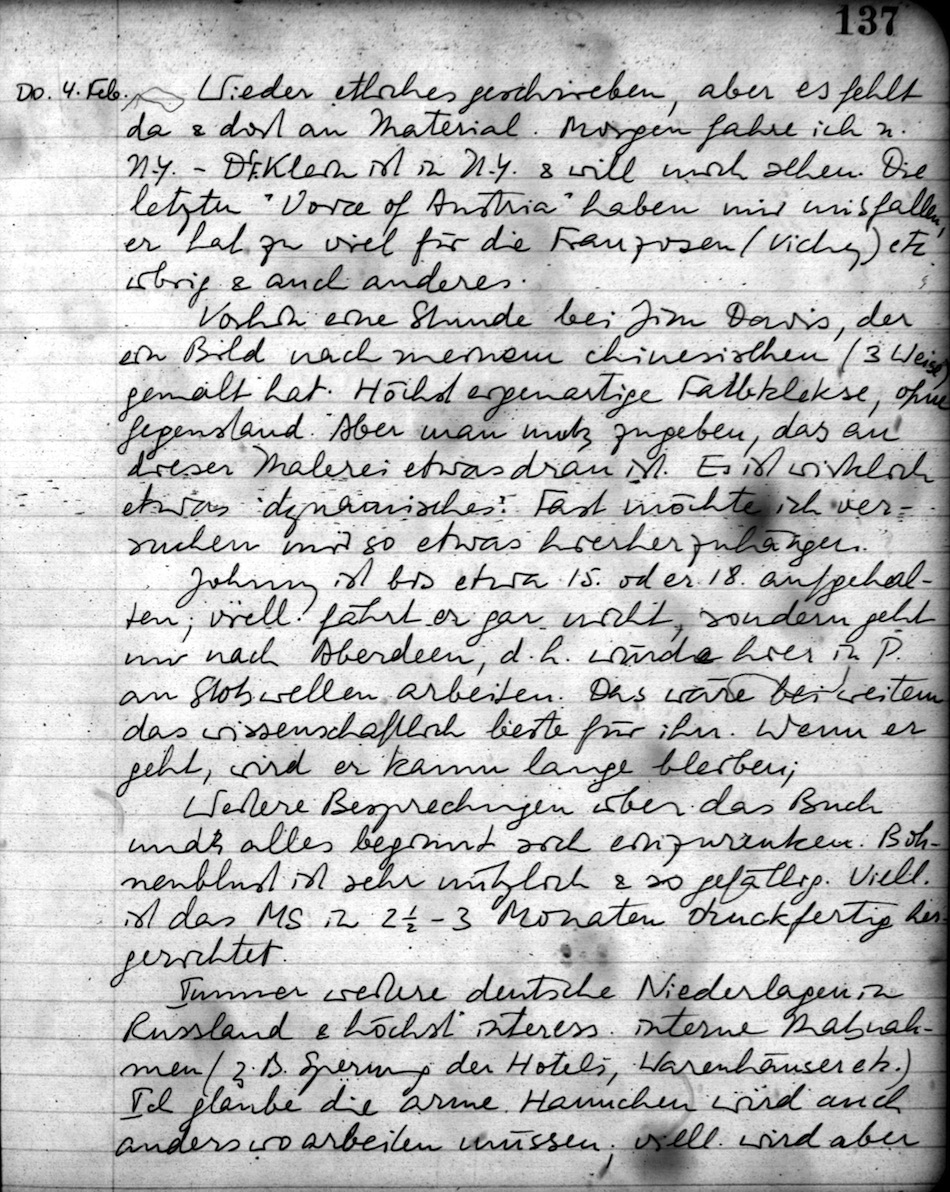 137
Do. 4. Feb. Wieder etliches geschrieben, aber es fehlt
da & dort an Material. Morgen fahre ich n.
N.Y. - Dr. Klein ist in N.Y. & will mich sehen. Die
letzten "Voice of Austria" haben mir misfallen,
er hat zu viel für die Franzosen (Vichy) etc.
übrig & auch anderes.
Vorhin eine Stunde bei Jim Davis, der
ein Bild nach meinem chinesischen (3 Weise)
gemalt hat. Höchst eigenartige Farbklekse, ohne
Gegenstand. Aber man muss zugeben, das an
dieser Malerei etwas dran ist. Es ist wirklich
etwas "dynamisches". Fast möchte ich ver-
suchen mir so etwas hierherzuhängen.
Johnny ist bis etwa 15. oder 18. aufgehal-
ten; viell. fährt er gar nicht, sondern geht
nur nach Aberdeen, d.h. würde hier in P.
an Stosswellen arbeiten. Das wäre bei weitem
das wissenschaftlich beste für ihn. Wenn er
geht, wird er kaum lange bleiben;
Weitere Besprechungen über das Buch
und alles beginnt sich einzurenken. Boh-
nenblust ist sehr nützlich & so gefällig. Viell.
ist das MS in 2½ - 3 Monaten druckfertig her-
gerichtet.
Immer weitere deutsche Niederlagen in
Russland & höchst interess. interne Massnah-
men (z.B. Sperrung der Hotels, Warenhäuser etc.)
Ich glaube die arme Hannchen wird auch
anderswo arbeiten müssen; viell. wird aber